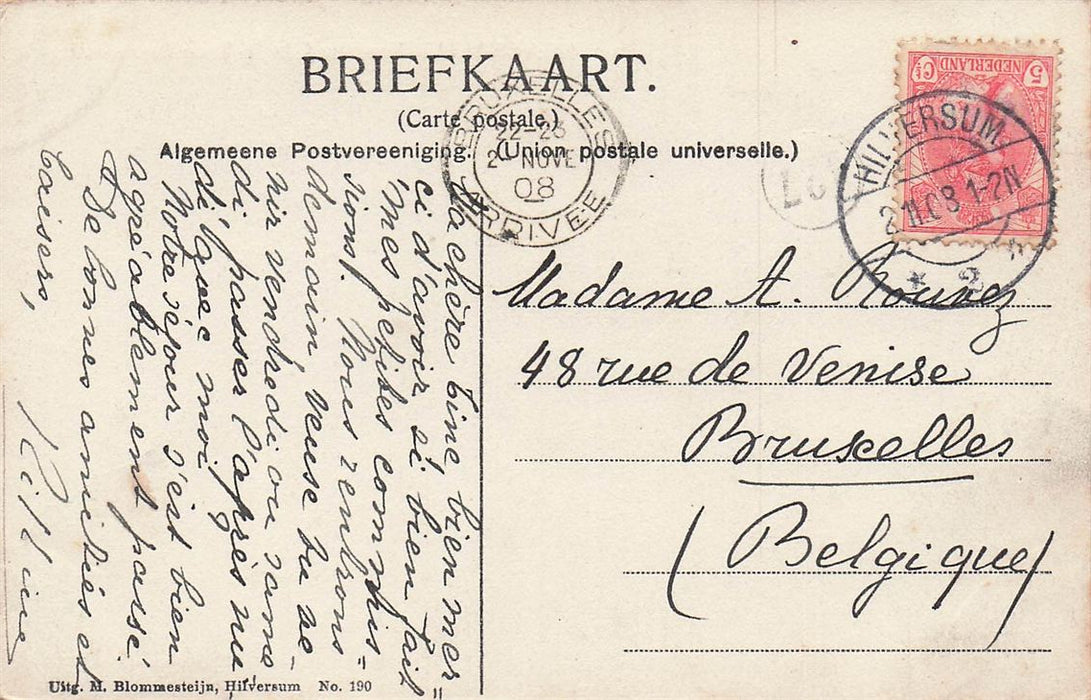 BRIEFKAART.
(Carte postale.)
Algemeene Postvereeniging. (Union postale universelle.)
5 NEDERLAND Ct
HILVERSUM
2.11.08 1-2N
* 2
BRUXELLES
22-23
2- NOVE
08
ARRIVEE
Madame A.
48 rue de Venise
Bruxelles
(Belgique)
Ma chère Tine, bien mer=
ci d'avoir si bien fait
mes petites commis=
sions. Nous rentrons
demain, veuse tu ve-
nir vendredi ou same
di passer l'après mi
di avec moi
Notre séjour s'est bien
agréablement passé.
De bonnes amitiés et
baisers,
Uitg. M. Blommesteijn, Hilversum No. 190